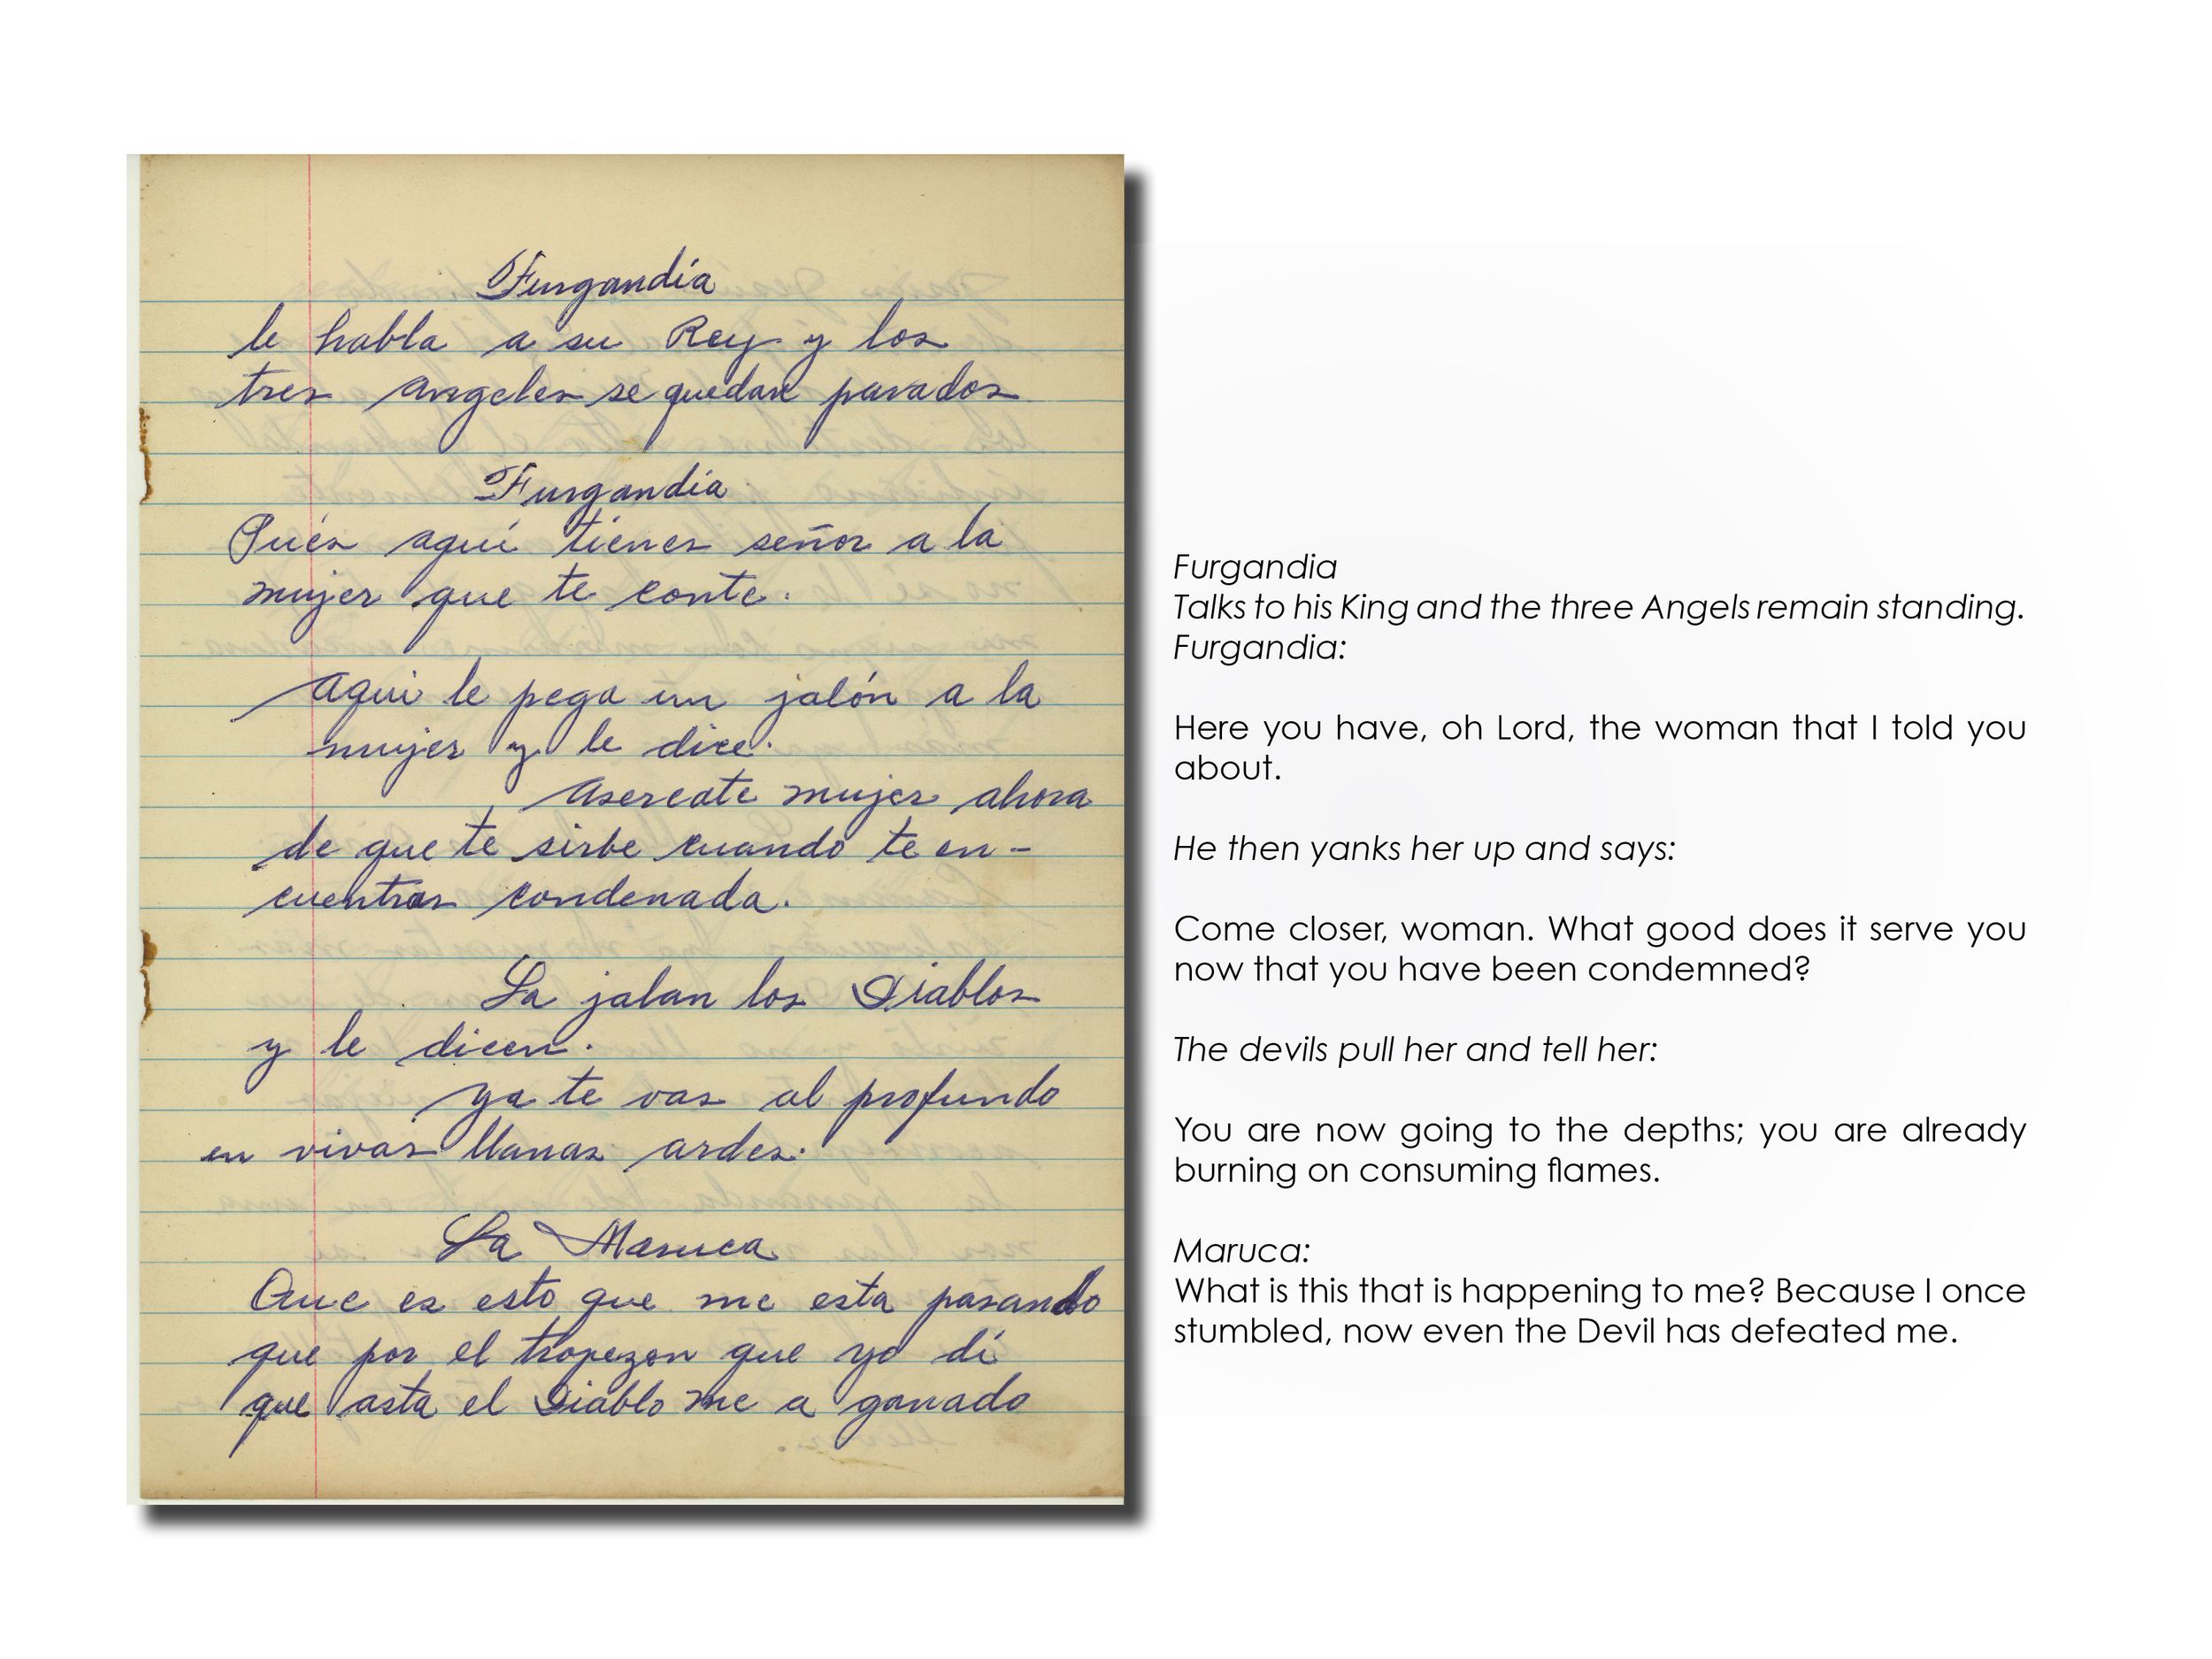 Furgandía
le habla a su Rey y los
tres Angeles se quedan parados
Furgandía
Pués aquí tienes señor a la
mujer que te conte.
Aqui le pega un jalón a la
mujer y le dice.
Asercate mujer ahora
de que te sirbe cuando te en-
cuentras condenada.
La jalan los Diablos
y le dicen.
Ya te vas al profundo
en vivas llanas ardes.
La Maruca
Que es esto que me esta pasando
que por el tropezon que yo dí
que asta el Diablo me a ganado
Furgandia
Talks to his King and the three Angels remain standing.
Furgandia:
Here you have, oh Lord, the woman that I told you
about.
He then yanks her up and says:
Come closer, woman. What good does it serve you
now that you have been condemned?
The devils pull her and tell her:
You are now going to the depths; you are already
burning on consuming flames.
Maruca:
What is this that is happening to me? Because I once
stumbled, now even the Devil has defeated me.